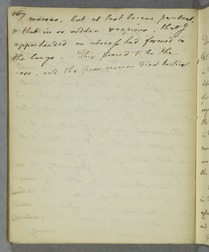 167
mucous, but at last became purulent
& that in so sudden & copious, that I
apprehended an abscess had formed in
the lungs. This proved to be the
case, and the poor woman died hectical.